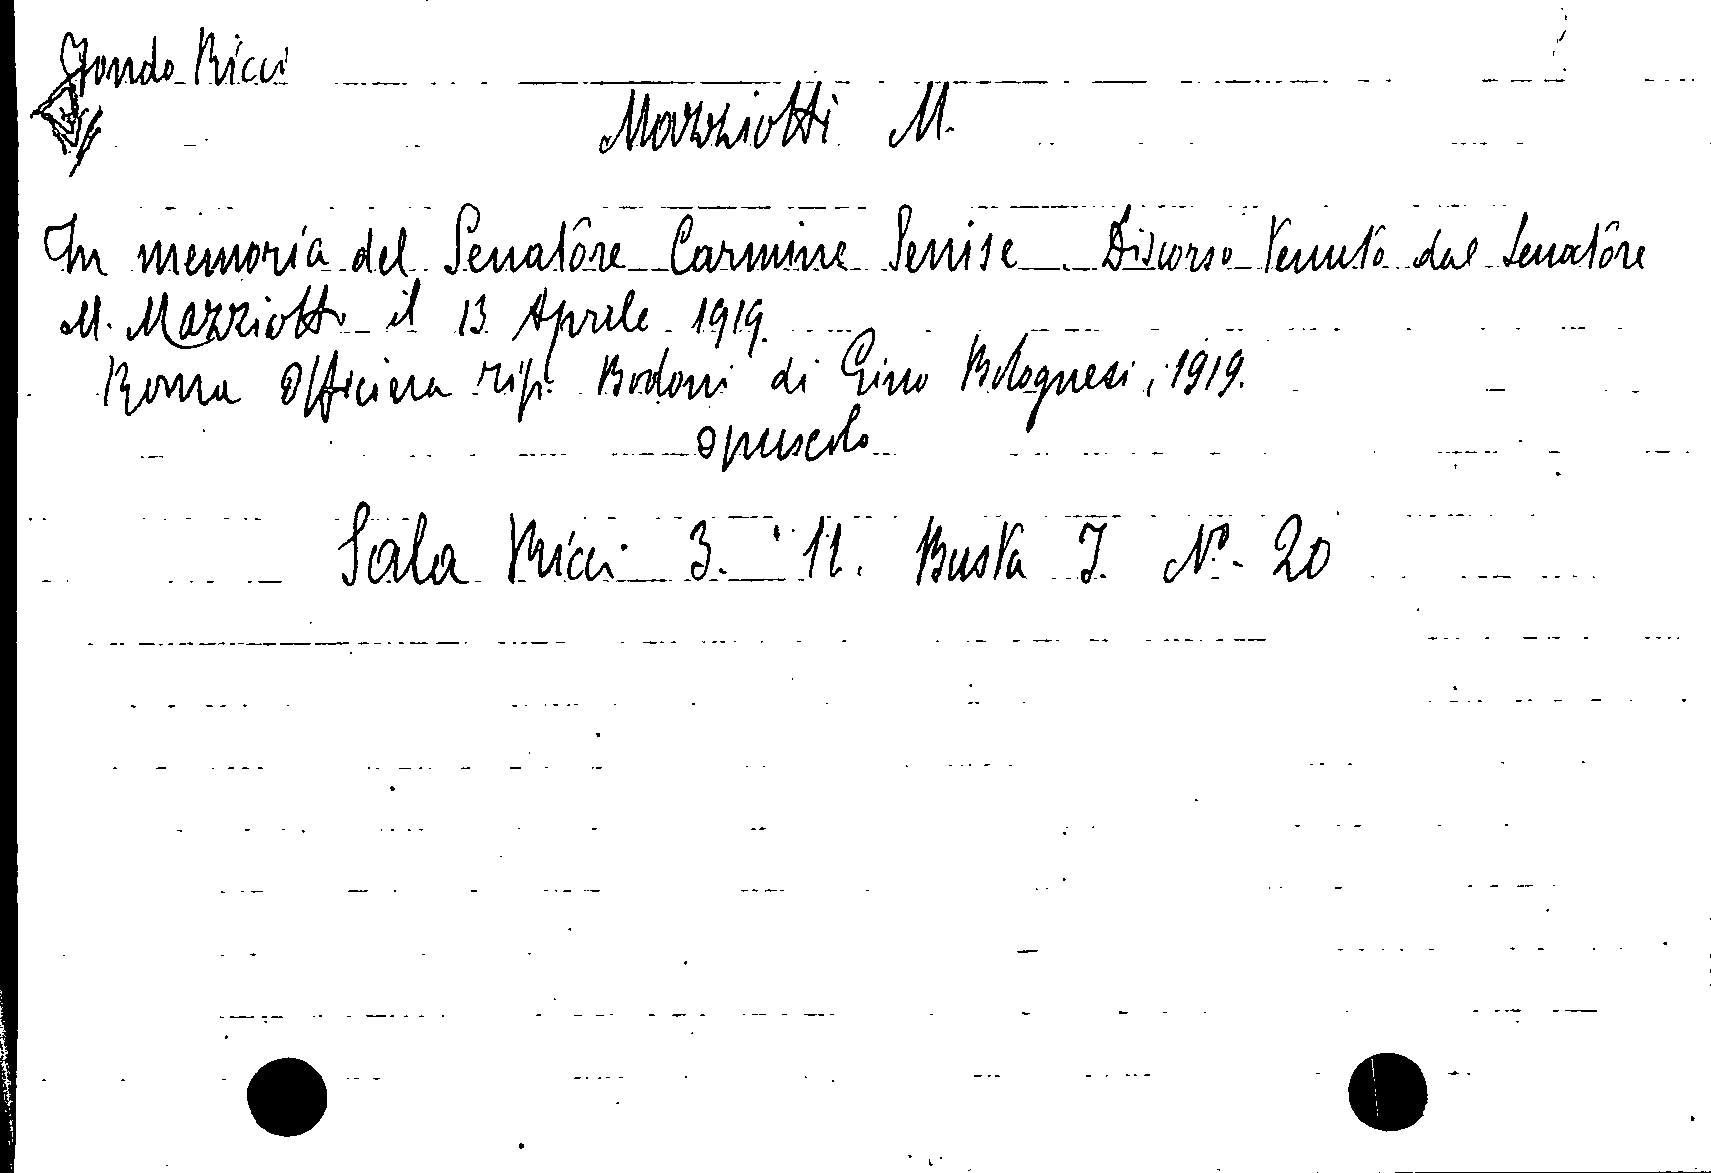 Fondo Ricci
Mazziotti M.
In memoria del Senatore Carmine Senise. Discorso tenuto dal Senatore
M. Mazziotti il 13 Aprile 1919.
Roma Officina tip. Bodoni di Gino Bolognesi, 1919.
opuscolo
Sala Ricci 3. 11. Busta I. Nº. 20